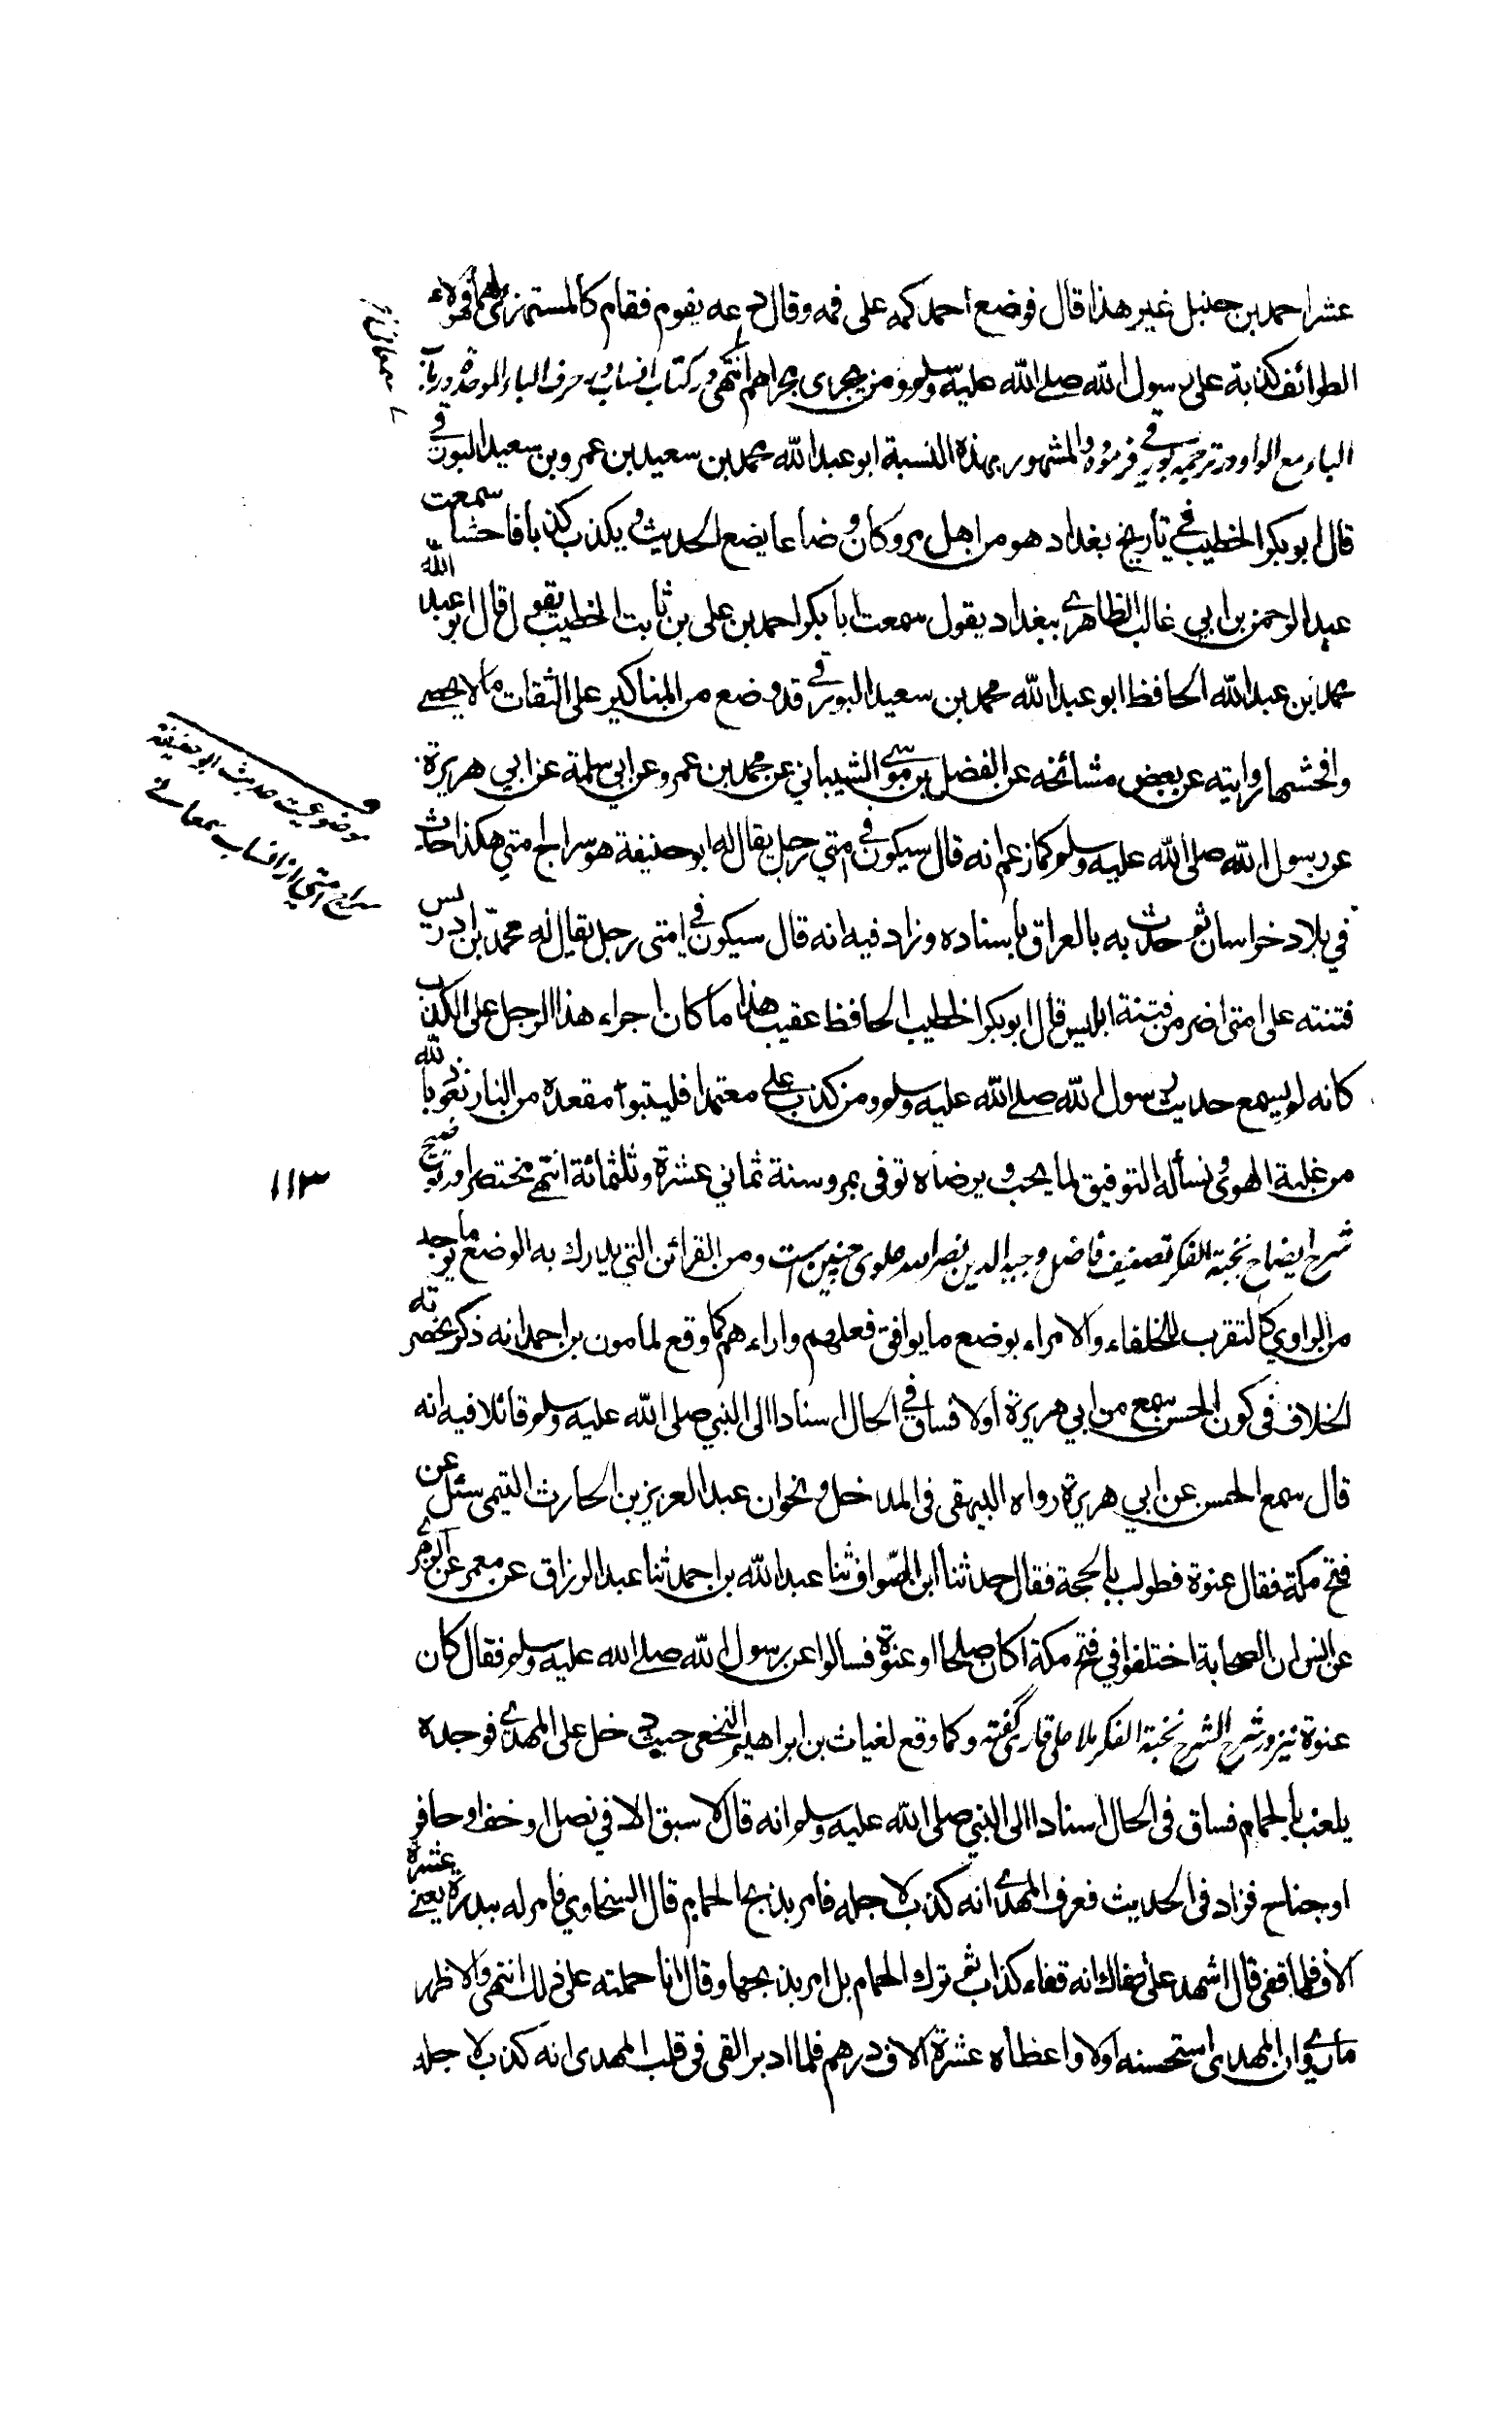 عشر احمد بن حنبل غير هذا قال فوضع احمد كمه على فمه وقال دعه يقوم فقام كالمستهزئ بهما فهؤلاء
الطوائف كذبة على رسول الله صلى الله عليه وسلم ومن يجرى مجراهم انتهى در كتاب انساب در حرف الباء الموحده در باب
الباء مع الواو در ترجمه بورقي فرموده والمشهور بهذه النسبة ابو عبد الله محمد بن سعيد بن عمرو بن سعيد البورقي
قال ابو بكر الخطيب في تاريخ بغداد هو من اهل مرو كان وضاعا يضع الحديث ويكذب كذبا فاحشا سمعت
عبد الرحمن بن ابي غالب الظاهري ببغداد يقول سمعت ابا بكر احمد بن على بن ثابت الخطيب يقول قال ابو عبد الله
محمد بن عبد الله الحافظ ابو عبد الله محمد بن سعيد البورقي قد وضع من المناكير على الثقات ما لا يحصى
وافحشها روايته عن بعض مشائخه عن الفضل بن موسى الشيباني عن محمد بن عمرو عن ابي سلمة عن ابي هريرة
عن رسول الله صلى الله عليه وسلم كما زعم انه قال سيكون في امتي رجل يقال له ابو حنيفة هو سراج امتي هكذا حدث
في بلاد خراسان ثم حدث به بالعراق باسناده وزاد فيه انه قال سيكون في امتى رجل يقال له محمد بن ادريس
فتنته على امتى اضر من فتنة ابليس قال ابو بكر الخطيب الحافظ عقيب هذا ما كان اجراء هذا الرجل على الكذب
كانه لم يسمع حديث رسول الله صلى الله عليه وسلم ومن كذب على معتمدا فليتبوأ مقعده من النار نعوذ بالله
من غلبة الهوى ونسأله التوفيق لما يحب ويرضاه توفى بمرو سنة ثماني عشرة وثلثمائة انتهى مختصرا ودر توضيح
شرح ايضاح نخبة الفكر تصنيف فاضل وجيه الدين نصر الله علوى چنين ست ومن القرائن التي يدرك به الوضع ما يوجد
من الراوي كالتقرب للخلفاء والامراء بوضع ما يوافق فعلهم واراءهم كما وقع لمامون بن احمد انه ذكر بحضرته
الخلاف فى كون الحسن سمع من ابي هريرة اولا فساق في الحال اسنادا الى النبي صلى الله عليه وسلم قائلا فيه انه
قال سمع الحسن عن ابي هريرة رواه البيهقى فى المدخل ونحوان عبد العزيز بن الحارث التيمى سئل عن
فتح مكة فقال عنوة فطولب بالحجة فقال حدثنا ابن الصواف ثنا عبد الله بن احمد ثنا عبد الرزاق عن معمر عن الزهري
عن انس ان الصحابة اختلفوا في فتح مكة اكان صلحا او عنوة فسالوا عن رسول الله صلى الله عليه وسلم فقال كان
عنوة نيز در شرح الشرح نخبة الفكر ملا على قارى گفته وكما وقع لغياث بن ابراهيم النخعى حيث دخل على المهدي فوجده
يلعب بالحمام فساق فى الحال اسنادا الى النبي صلى الله عليه وسلم انه قال لا سبق الا في نصل او خف او حافر
او جناح فزاد فى الحديث فعرف المهدي انه كذب لاجله فامر بذبح الحمام قال السخاوي فامر له ببدرة يعني عشرة
الاف فلما قفى قال اشهد على قفاك انه قفاء كذاب ثم ترك الحمام بل امر بذبحها وقال انا حملته على ذلك انتهى والاظهر
ما روي ان المهدى استحسنه اولا واعطاه عشرة الاف درهم فلما ادبر القى فى قلب المهدى انه كذب لاجله
موضوعيت حديث ابو حنيفة
سراج امتي از انساب سمعاني
١١٣